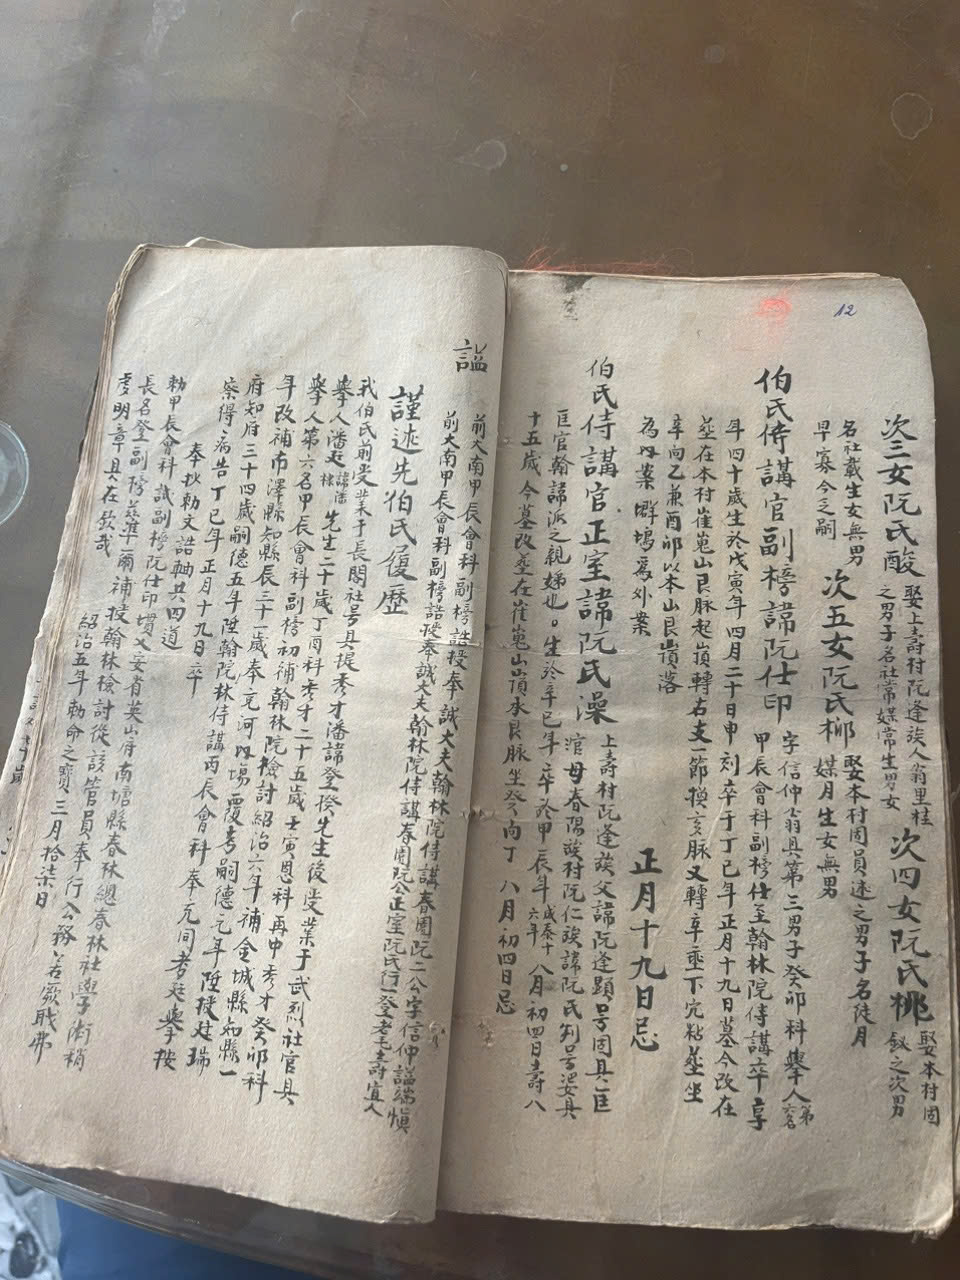 12
次三女阮氏酸
娶上壽村阮逢族人翁里桂
之男子名社常媒常生男女
次四女阮氏桃
娶本村固
釵之次男
名社戴生女無男
早寡今之嗣
次五女阮氏柳
娶本村固員述之男子名徒月
媒月生女無男
伯氏侍講官副榜諱阮仕印
字信仲翁具第三男子癸卯科舉人
第六名
甲辰會科副榜仕至翰林院侍講卒享
年四十歲生於戊寅年四月二十日申刻卒于丁巳年正月十九日墓今改在
葬在本村崔嵬山艮脉起頂轉右支一節換亥脉又轉辛亟下穴粘葬坐
辛向乙兼酉卯以本山艮嵿落
為內案群塢為外案
正月十九日忌
伯氏侍講官正室諱阮氏澡
上壽村阮逢族父諱阮逢顯号固具匡
母春陽族村阮仁族諱阮氏判号婆具
匡官翰諱派之親娣也。生於辛巳年卒於甲辰年
成泰十
六年
八月初四日壽八
十五歲今墓改葬在崔嵬山山頂承艮脉坐癸向丁
八月初四日忌
謚
前大南甲辰會科副榜誥授奉誠大夫翰林院侍講春圃阮二公字信仲謚端慎
前大南甲辰會科副榜誥授奉誠大夫翰林院侍講春圃阮公正室阮氏行登老耄壽宜人
謹述先伯氏履歷
我伯氏前受業于長閣社号具提秀才潘諱登揆先生後受業于武烈社官具
舉人潘
諱潘
先生二十歲丁酉科秀才二十五歲壬寅恩科再中秀才癸卯科
舉人第六名甲辰會科副榜初補翰林院檢討紹治六年補金城縣知縣一
年改補市澤縣知縣辰三十一歲奉充河內場覆考嗣德元年陞授建瑞
府知府三十四歲嗣德五年陞翰院林侍講丙辰會科奉充同考廷舉按
察得病告丁巳年正月十九日卒
奉抄勅文誥軸共四道
勅甲辰會科試副榜阮仕印貫乂安省英山府南塘縣春林總春林社學術稍
長名登副榜茲準爾補授翰林檢討從該管員奉行公務若厥職弗
虔明章具在欽哉
紹治五年勅命之寶三月拾柒日